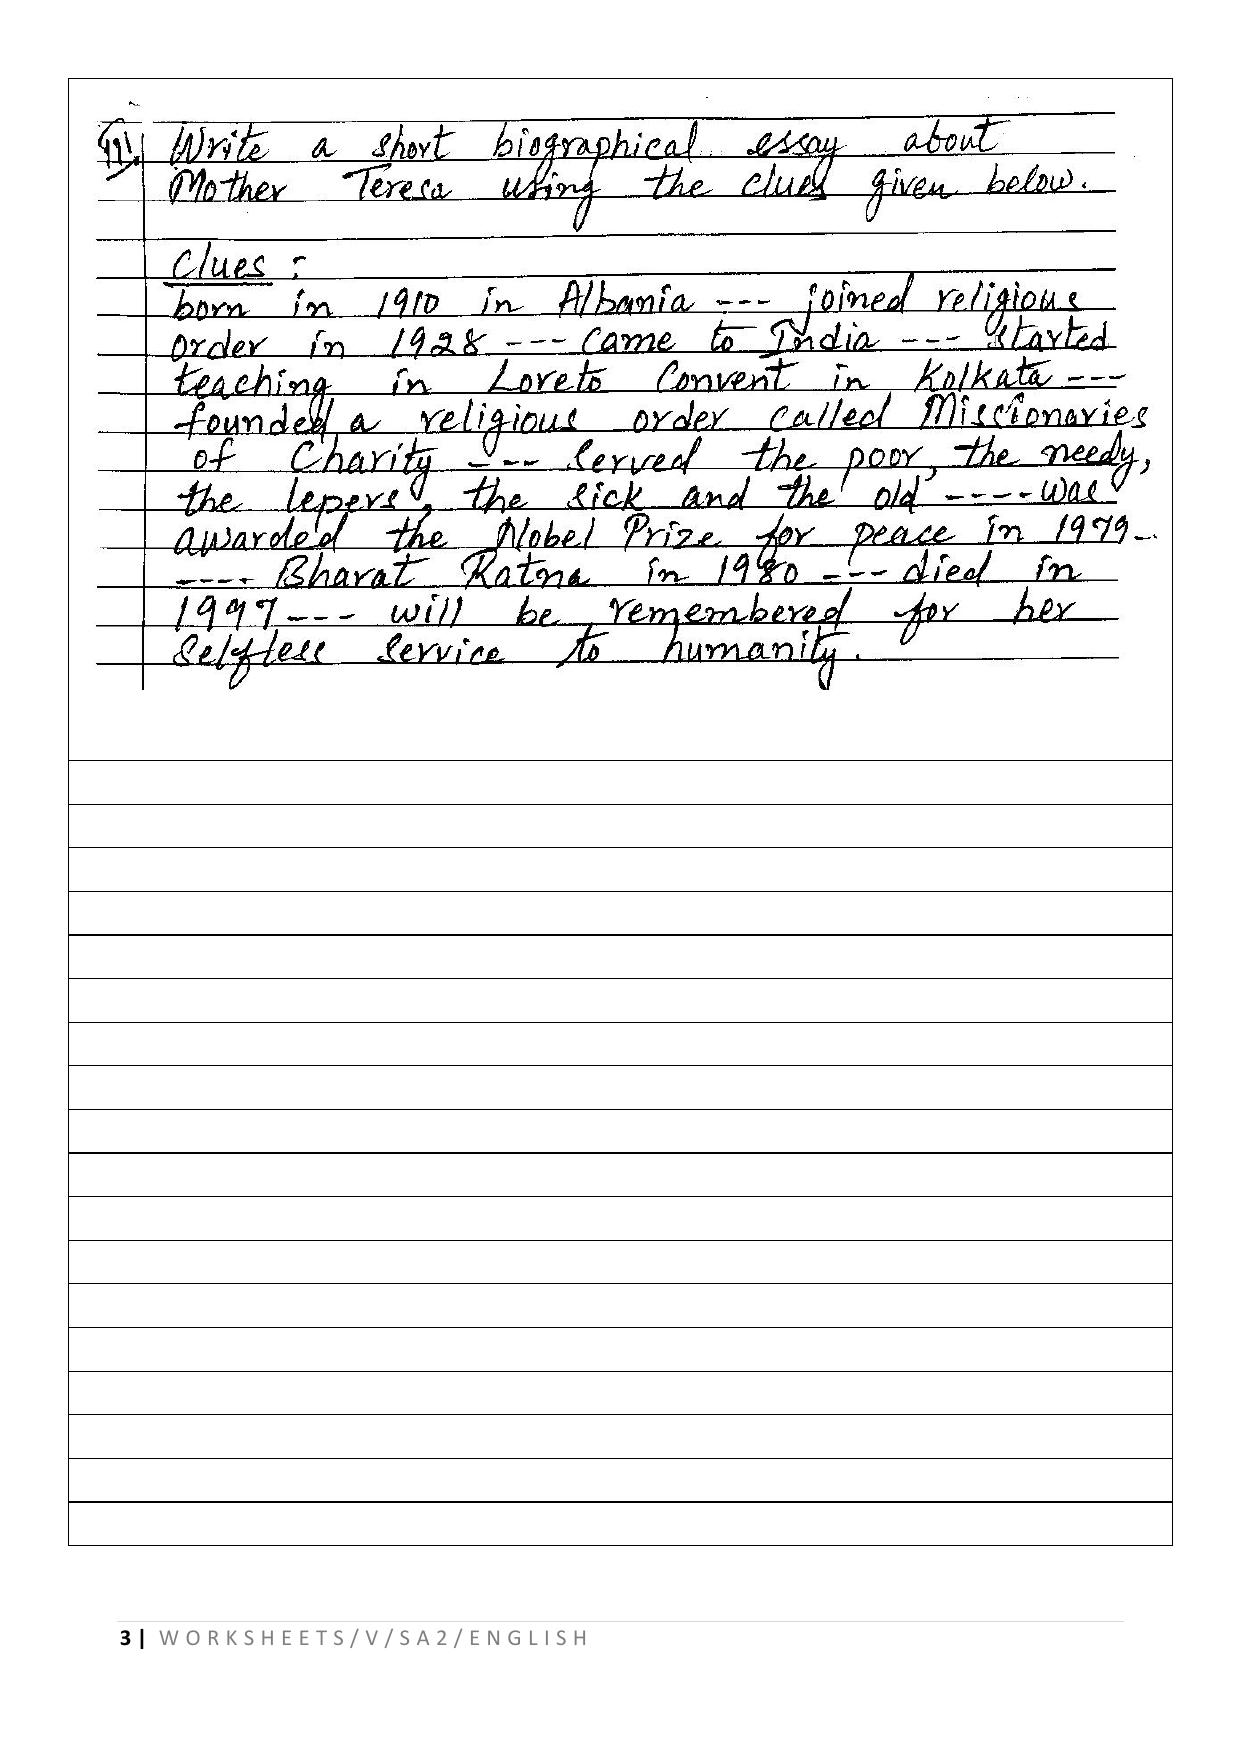 11. Write a short biographical essay about
Mother Teresa using the clues given below.
Clues :
born in 1910 in Albania --- joined religious
order in 1928 --- came to India --- started
teaching in Loreto Convent in Kolkata ---
founded a religious order called Missionaries
of Charity ---- served the poor, the needy,
the lepers, the sick and the old ---- was
awarded the Nobel Prize for peace in 1979 -
---- Bharat Ratna in 1980 --- died in
1997 --- will be remembered for her
selfless service to humanity.
3 | WORKSHEETS/V/SA2/ENGLISH